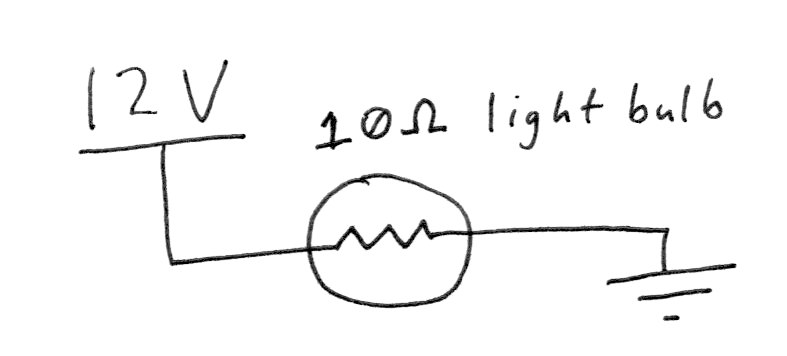 12V
10Ω light bulb